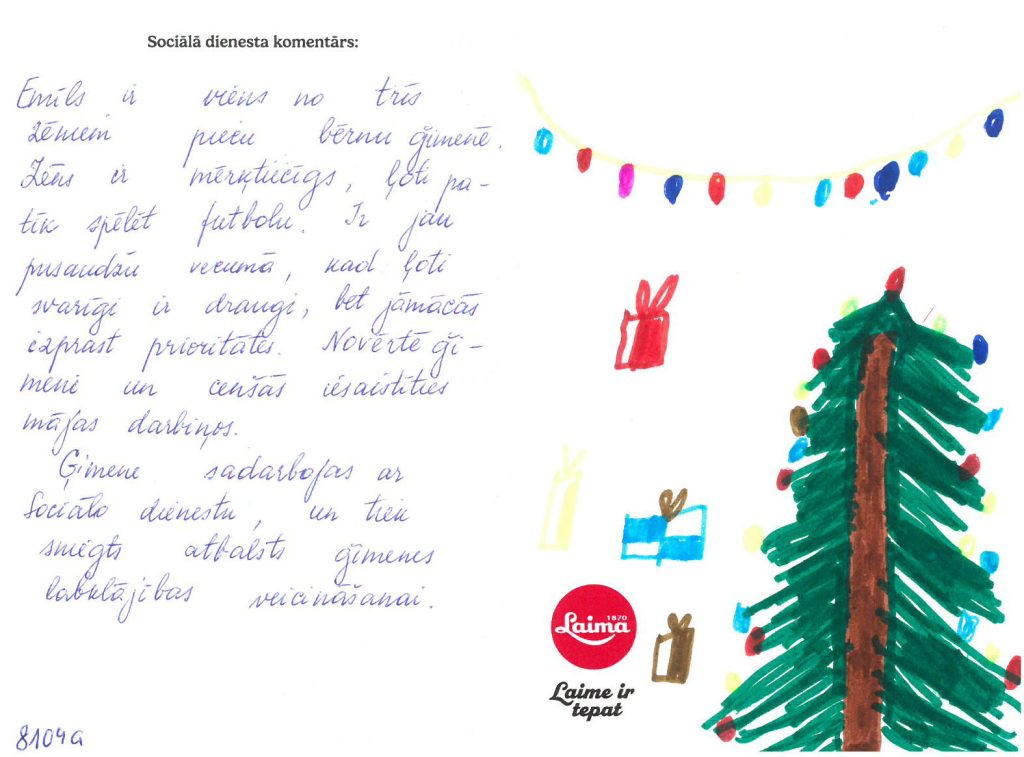 Sociālā dienesta komentārs:
Emīls ir viens no trīs
zēniem piecu bērnu ģimenē.
Zēns ir mērķtiecīgs, ļoti pa-
tīk spēlēt futbolu. Ir jau
pusaudžu vecumā, kad ļoti
svarīgi ir draugi, bet jāmācās
izprast prioritātes. Novērtē ģi-
meni un cenšās iesaistīties
mājas darbiņos.
Ģimene sadarbojas ar
Sociālo dienestu, un tiek
sniegts atbalsts ģimenes
labklājības veicināšanai.
8104a
1870
Laima
Laime ir
tepat